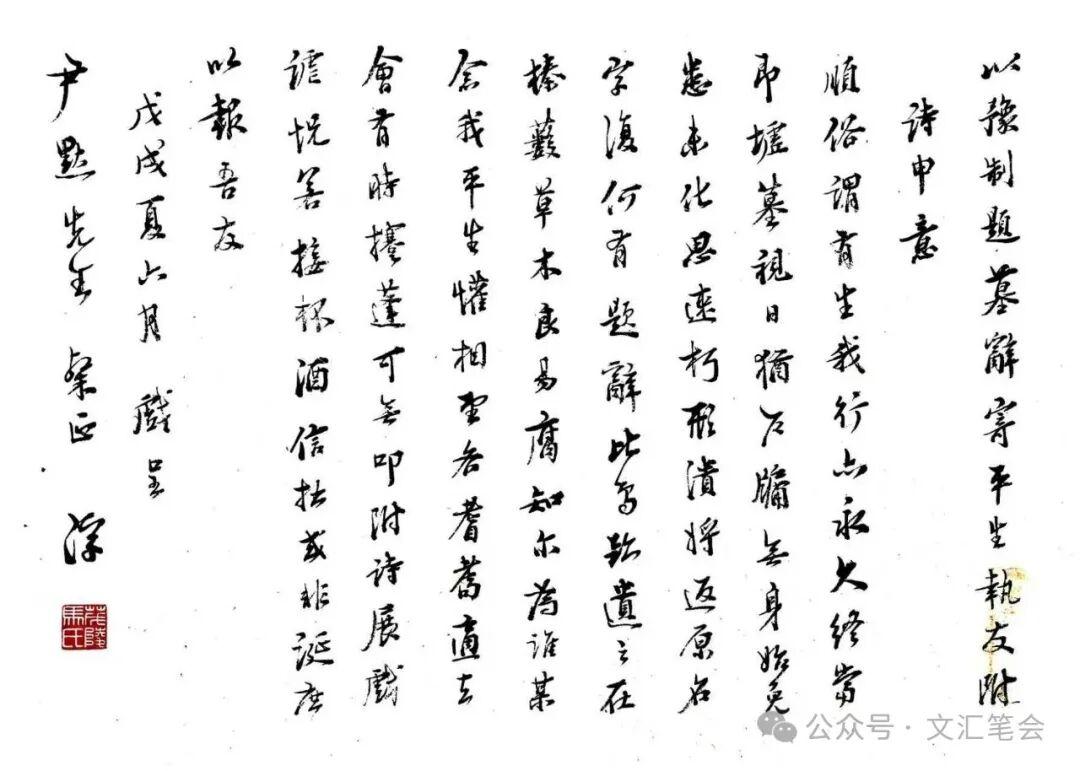 以豫制題墓辭寄平生執友附
詩申意
順俗謂有生我行亦永久終當
即墟墓視日猶戶牖無身始免
患未化思速朽形潰將返原名
字復何有題辭比遺之在
榛藪草木良易腐知尔為誰某
念我平生懽相望各耆耇適去
會有時攓蓬可無叩附詩展戲
謔怳若接杯酒信拙或非誕庶
以報吾友
戊戌夏六月 戲呈
尹默先生 粲正 浮
茂陵馬氏
公众号·文汇笔会